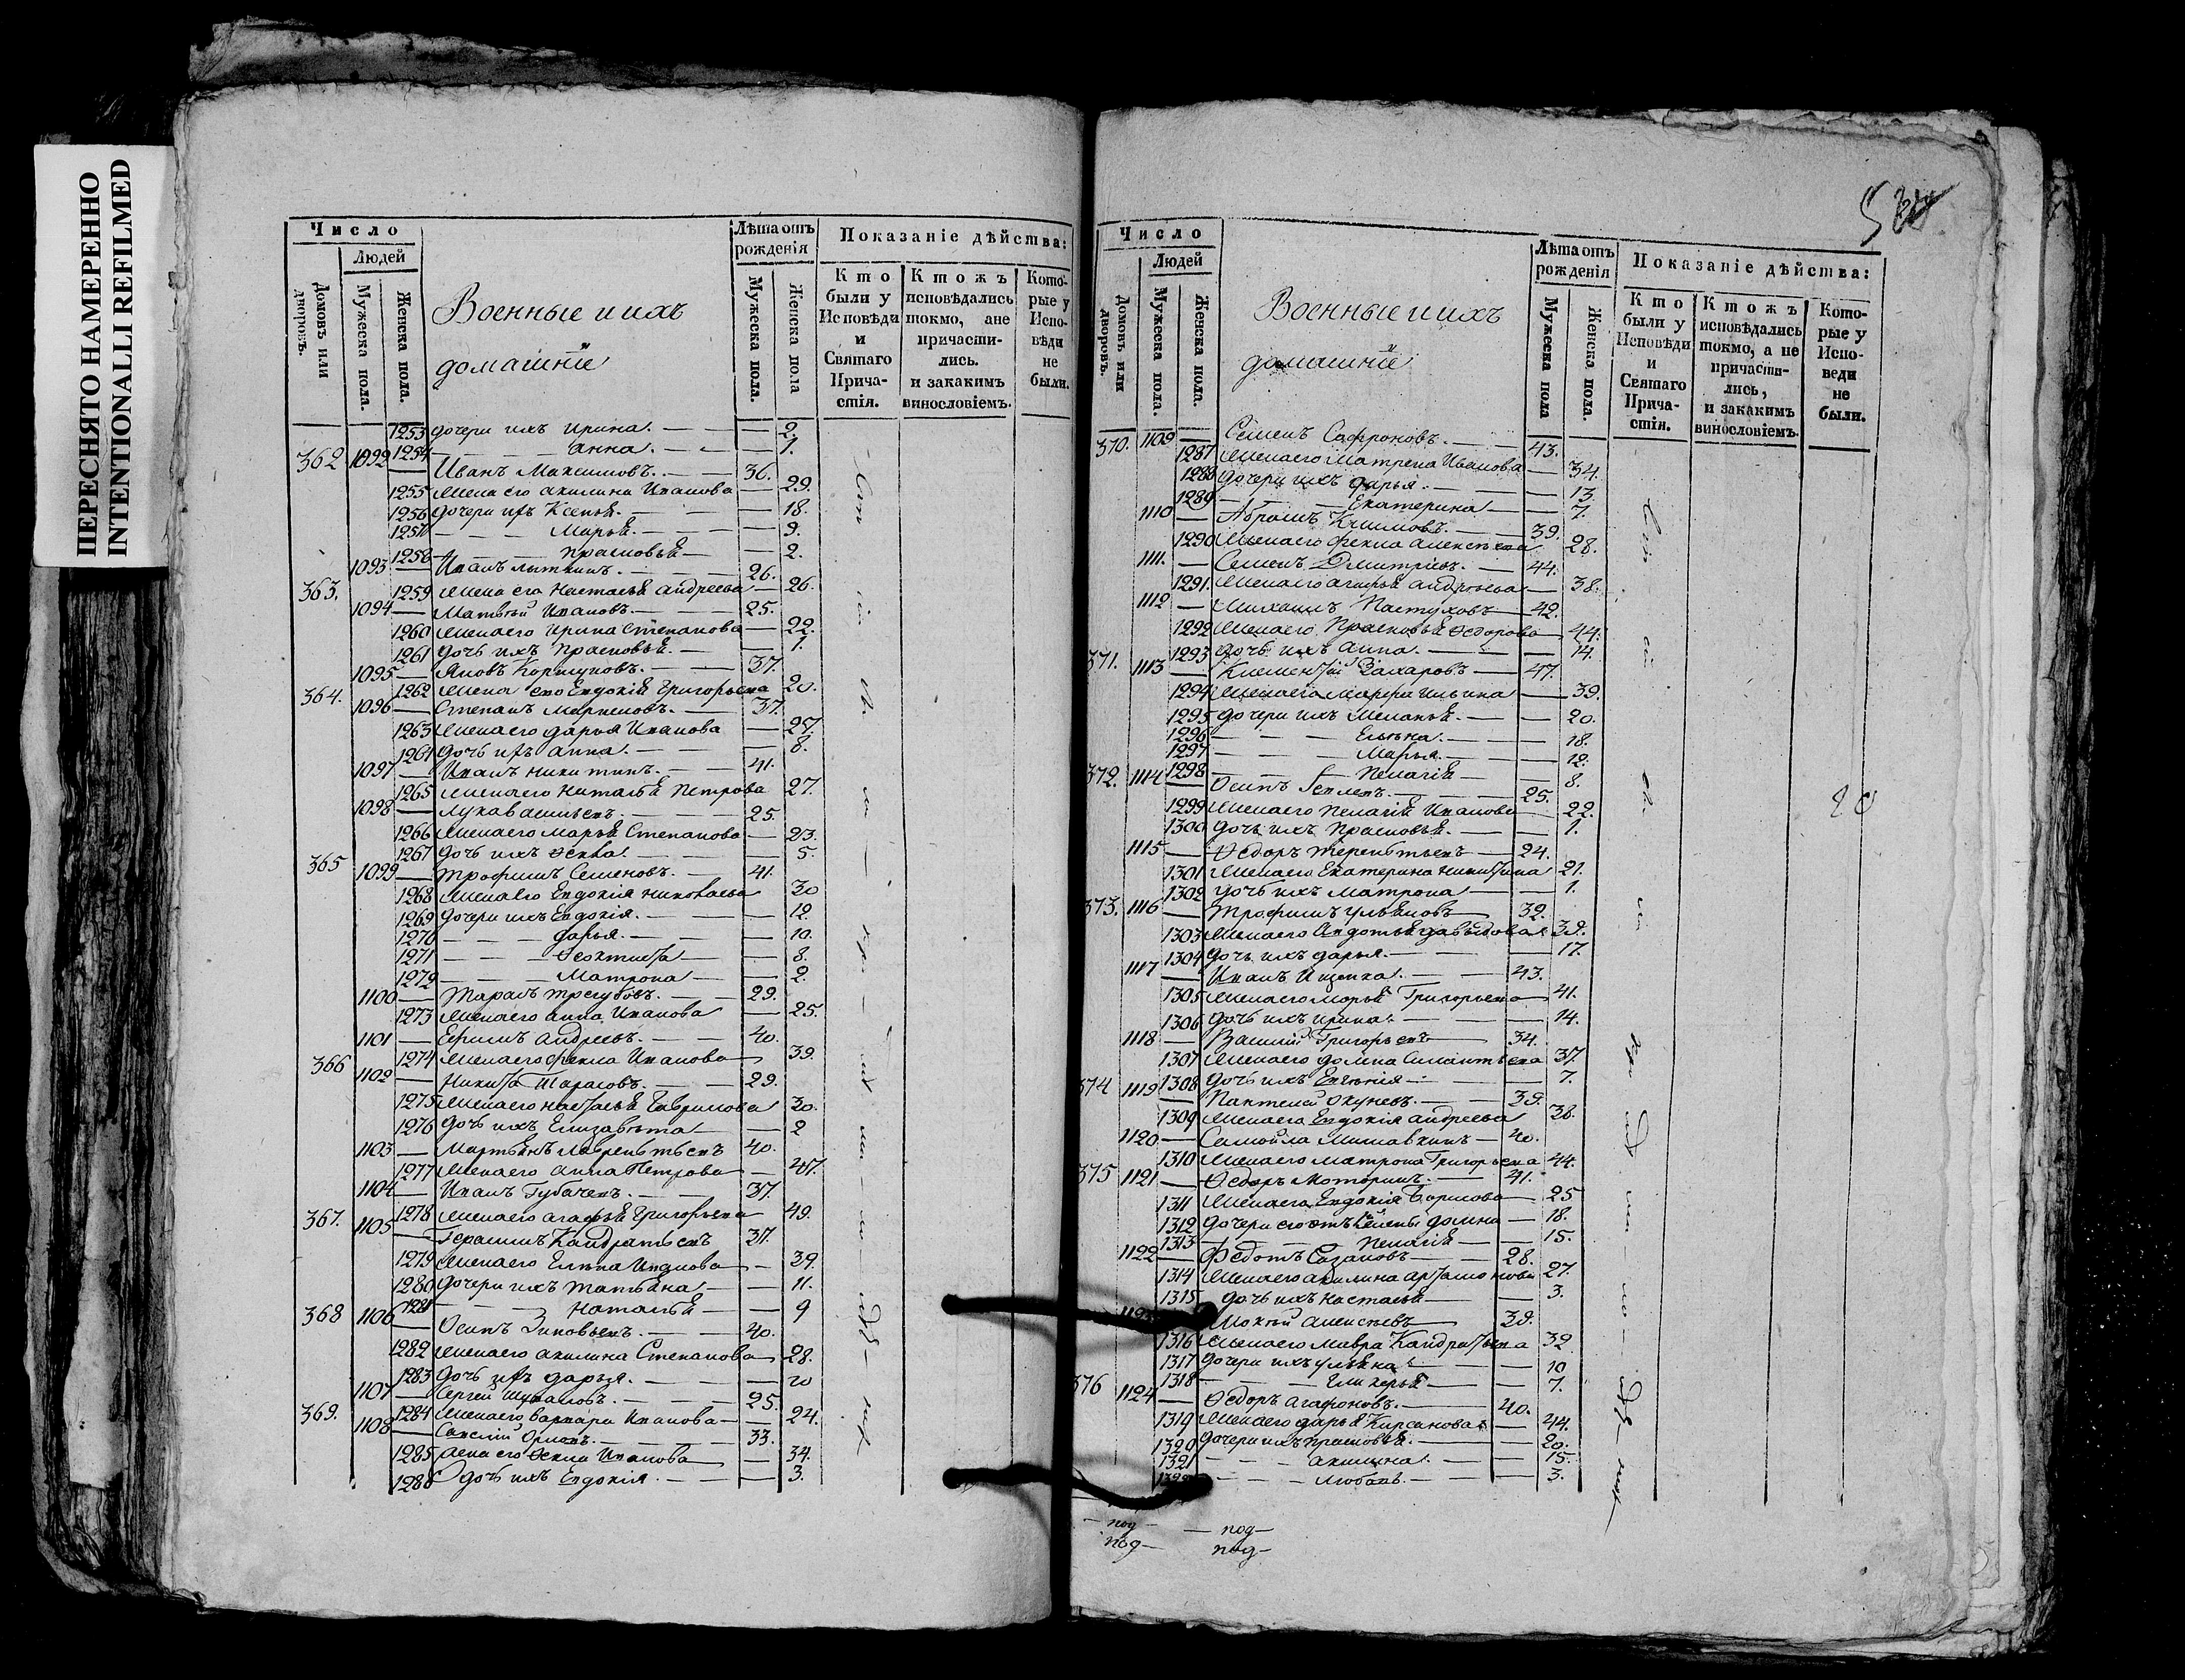 ПЕРЕСНЯТО НАМЕРЕННО
INTENTIONALLI REFILMED
Число
Людей
Домовъ или дворовъ.
Мужеска пола.
Женска пола.
Военные и ихъ
домашніи
Лѣта отъ рожденія
Мужеска пола.
Женска пола
Показаніе дѣйства:
Кто были у Исповѣди и Святаго Прича- стія.
Ктожъ исповѣдались токмо, ане причасти- лись. и закакимъ винословіемъ.
Кото- рые у Испо- вѣди не были.
1253 дочери ихъ Ирина. — — — 2.
1254 — — — Анна. — — — 1.
362 1092 — Иванъ Максимовъ. — — 36.
1255 жена его Акилина Иванова — 29.
1256 дочери ихъ Ксенья. — — 18.
1257 — — — Марья. — — 9.
1258 — — — Прасковья — — 2.
1093 — Иванъ Лыткинъ. — — 26.
363. 1259 жена его Настасья Андреева — 26.
1094 — Матвѣй Ивановъ. — — 25.
1260 жена его Ирина Степанова — 22.
1261 дочь ихъ Прасковья. — — 1.
1095 — Яковъ Коршуновъ. — — 37.
364. 1262 жена его Евдокія Григорьева 20.
1096 — Степанъ Маркеловъ. — 37.
1263 жена его Дарья Иванова — 27.
1264 дочь ихъ Анна. — — — 8.
1097 — Иванъ Никитинъ. — — 41.
1265 жена его Наталья Петрова 27.
1098 — Лукав — — 25.
1266 жена его Марья Степанова — 23.
1267 дочь ихъ Ѳекла. — — — 5.
365 1099 — Трофимъ Семеновъ. — 41.
1268 жена его Евдокія Николаева 30
1269 дочери ихъ Евдокія. — — 12.
1270 — — — Дарья. — — 10.
1271 — — — Ѳеоктиста — — 8.
1272 — — — Матрона — — 2.
1100 — Тарасъ Трегубовъ. — — 29.
1273 жена его Анна Иванова — 25.
1101 — Ефимъ Андреевъ. — — 40.
366 1274 жена его Фекла Иванова — 39.
1102 — Никита Тарасовъ. — — 29.
1275 жена его Настасья Гаврилова 30.
1276 дочь ихъ Елизавѣта — — 2
1103 — Мартынъ Лаврентьевъ 40.
1277 жена его Анна Петрова — 47.
1104 — Иванъ Губачевъ. — — 37.
367. 1278 жена его Агафья Григорьева 49.
1105 — Герасимъ Кандратьевъ 37.
1279 жена его Елена Иванова — 39.
1280 дочери ихъ Татьяна — — 11.
1281 — — — Наталья — — 9
368 1106 — Осипъ Зиновьевъ. — — 40.
1282 жена его Акилина Степанова 28.
1283 дочь ихъ Дарья. — — 20
1107 — Сергей — — 25.
369. 1284 жена его Варвара Иванова — 24.
1108 — Савелій Орловъ. — — 33.
1285 жена его Ѳекла Иванова — 34.
1286 дочь ихъ Евдокія. — — 3.
Число
Людей
Домовъ или дворовъ.
Мужеска пола.
Женска пола.
Военные и ихъ
домашніи
Лѣта отъ рожденія
Мужеска пола
Женска пола.
Показаніе дѣйства:
Кто были у Исповѣди и Святаго Прича- стія.
Ктожъ исповѣдались токмо, а не причасти- лись, и закакимъ винословіемъ.
Кото- рые у Испо- веди не были.
370. 1109 — Семенъ Сафроновъ. — — 43.
1287 жена его Матрена Иванова — 34.
1288 дочери ихъ Дарья. — — 13.
1289 — — — Екатерина — — 7.
1110 — Абрамъ Климовъ. — — 39.
1290 жена его Фекла Алексѣева 28.
1111. — Семенъ Дмитріевъ. — 44.
1291. жена его Агафья Андреева — 38.
1112 — Михаилъ Пастуховъ — 42.
1292 жена его Прасковья Ѳедорова 44.
1293 дочь ихъ Анна. — — — 14.
371. 1113 — Климентій Захаровъ — 47.
1294 жена его Марфа Ильина — 39.
1295 дочери ихъ Меланья. — — 20.
1296 — — — Елена. — — 18.
1297 — — — Марья. — — 12.
1298 — — — Пелагія — — 8.
372. 1114 — Осипъ — — 25.
1299 жена его Пелагія Иванова — 22.
1300 дочь ихъ Прасковья. — — 1.
1115 — Ѳедоръ Терентьевъ — 24.
1301 жена его Екатерина Никитина 21.
1302 дочь ихъ Матрона — — 1.
373. 1116 — Трофимъ Ульяновъ — 32.
1303 жена его Авдотья Давыдова 39.
1304 дочь ихъ Дарья. — — 17.
1117 — Иванъ Ищенка. — — 43.
1305 жена его Марья Григорьева — 41.
1306 дочь ихъ Ирина. — — 14.
1118 — Василій Григорьевъ — 34.
1307 жена его Домна 37.
1308 дочь ихъ Евгенія — — 7.
374 1119 — Пантелей Окуневъ. — 39.
1309 жена его Евдокія Андреева 36.
1120 — Самойла — 40.
1310 жена его Матрона Григорьева 44.
375 1121 — Ѳедоръ Моторинъ. — 41.
1311 жена его Евдокія Борисова — 25
1312 дочери его отъ 1й жены Домна — 18.
1313 — — — Пелагія — — 15.
1122 — Федотъ Сазановъ — 28.
1314 жена его Акилина Артамонова 27.
1315 дочь ихъ Настасья — — 3.
Мокѣй Алексѣевъ — 39.
1316 жена его Мавра Кандратьева 32
1317 дочери ихъ Ульяна — — 10
1318 — — — Гликерья — — 7.
376 1124 — Ѳедоръ Агафоновъ. — 40.
1319 жена его Дарья Кирсанова — 44.
1320 дочери ихъ Прасковья. — — 20.
1321 — — — Акилина. — — 15.
1322 — — — Любовь. — — 3.
— под — — под —
под — под —